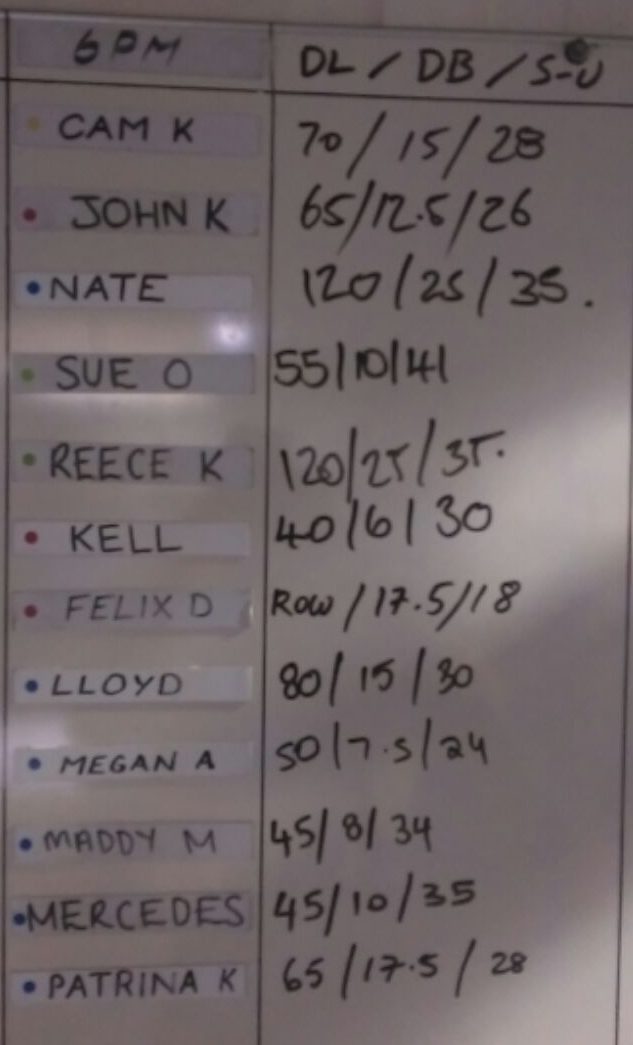 6PM DL / DB / S-U
CAM K 70 / 15 / 28
JOHN K 65/12.5/26
NATE 120/25/35.
SUE O 55/10/41
REECE K 120/25/35.
KELL 40/6/30
FELIX D ROW / 17.5/18
LLOYD 80/15/30
MEGAN A 50/7.5/24
MADDY M 45/8/34
MERCEDES 45/10/35
PATRINA K 65/17.5/28